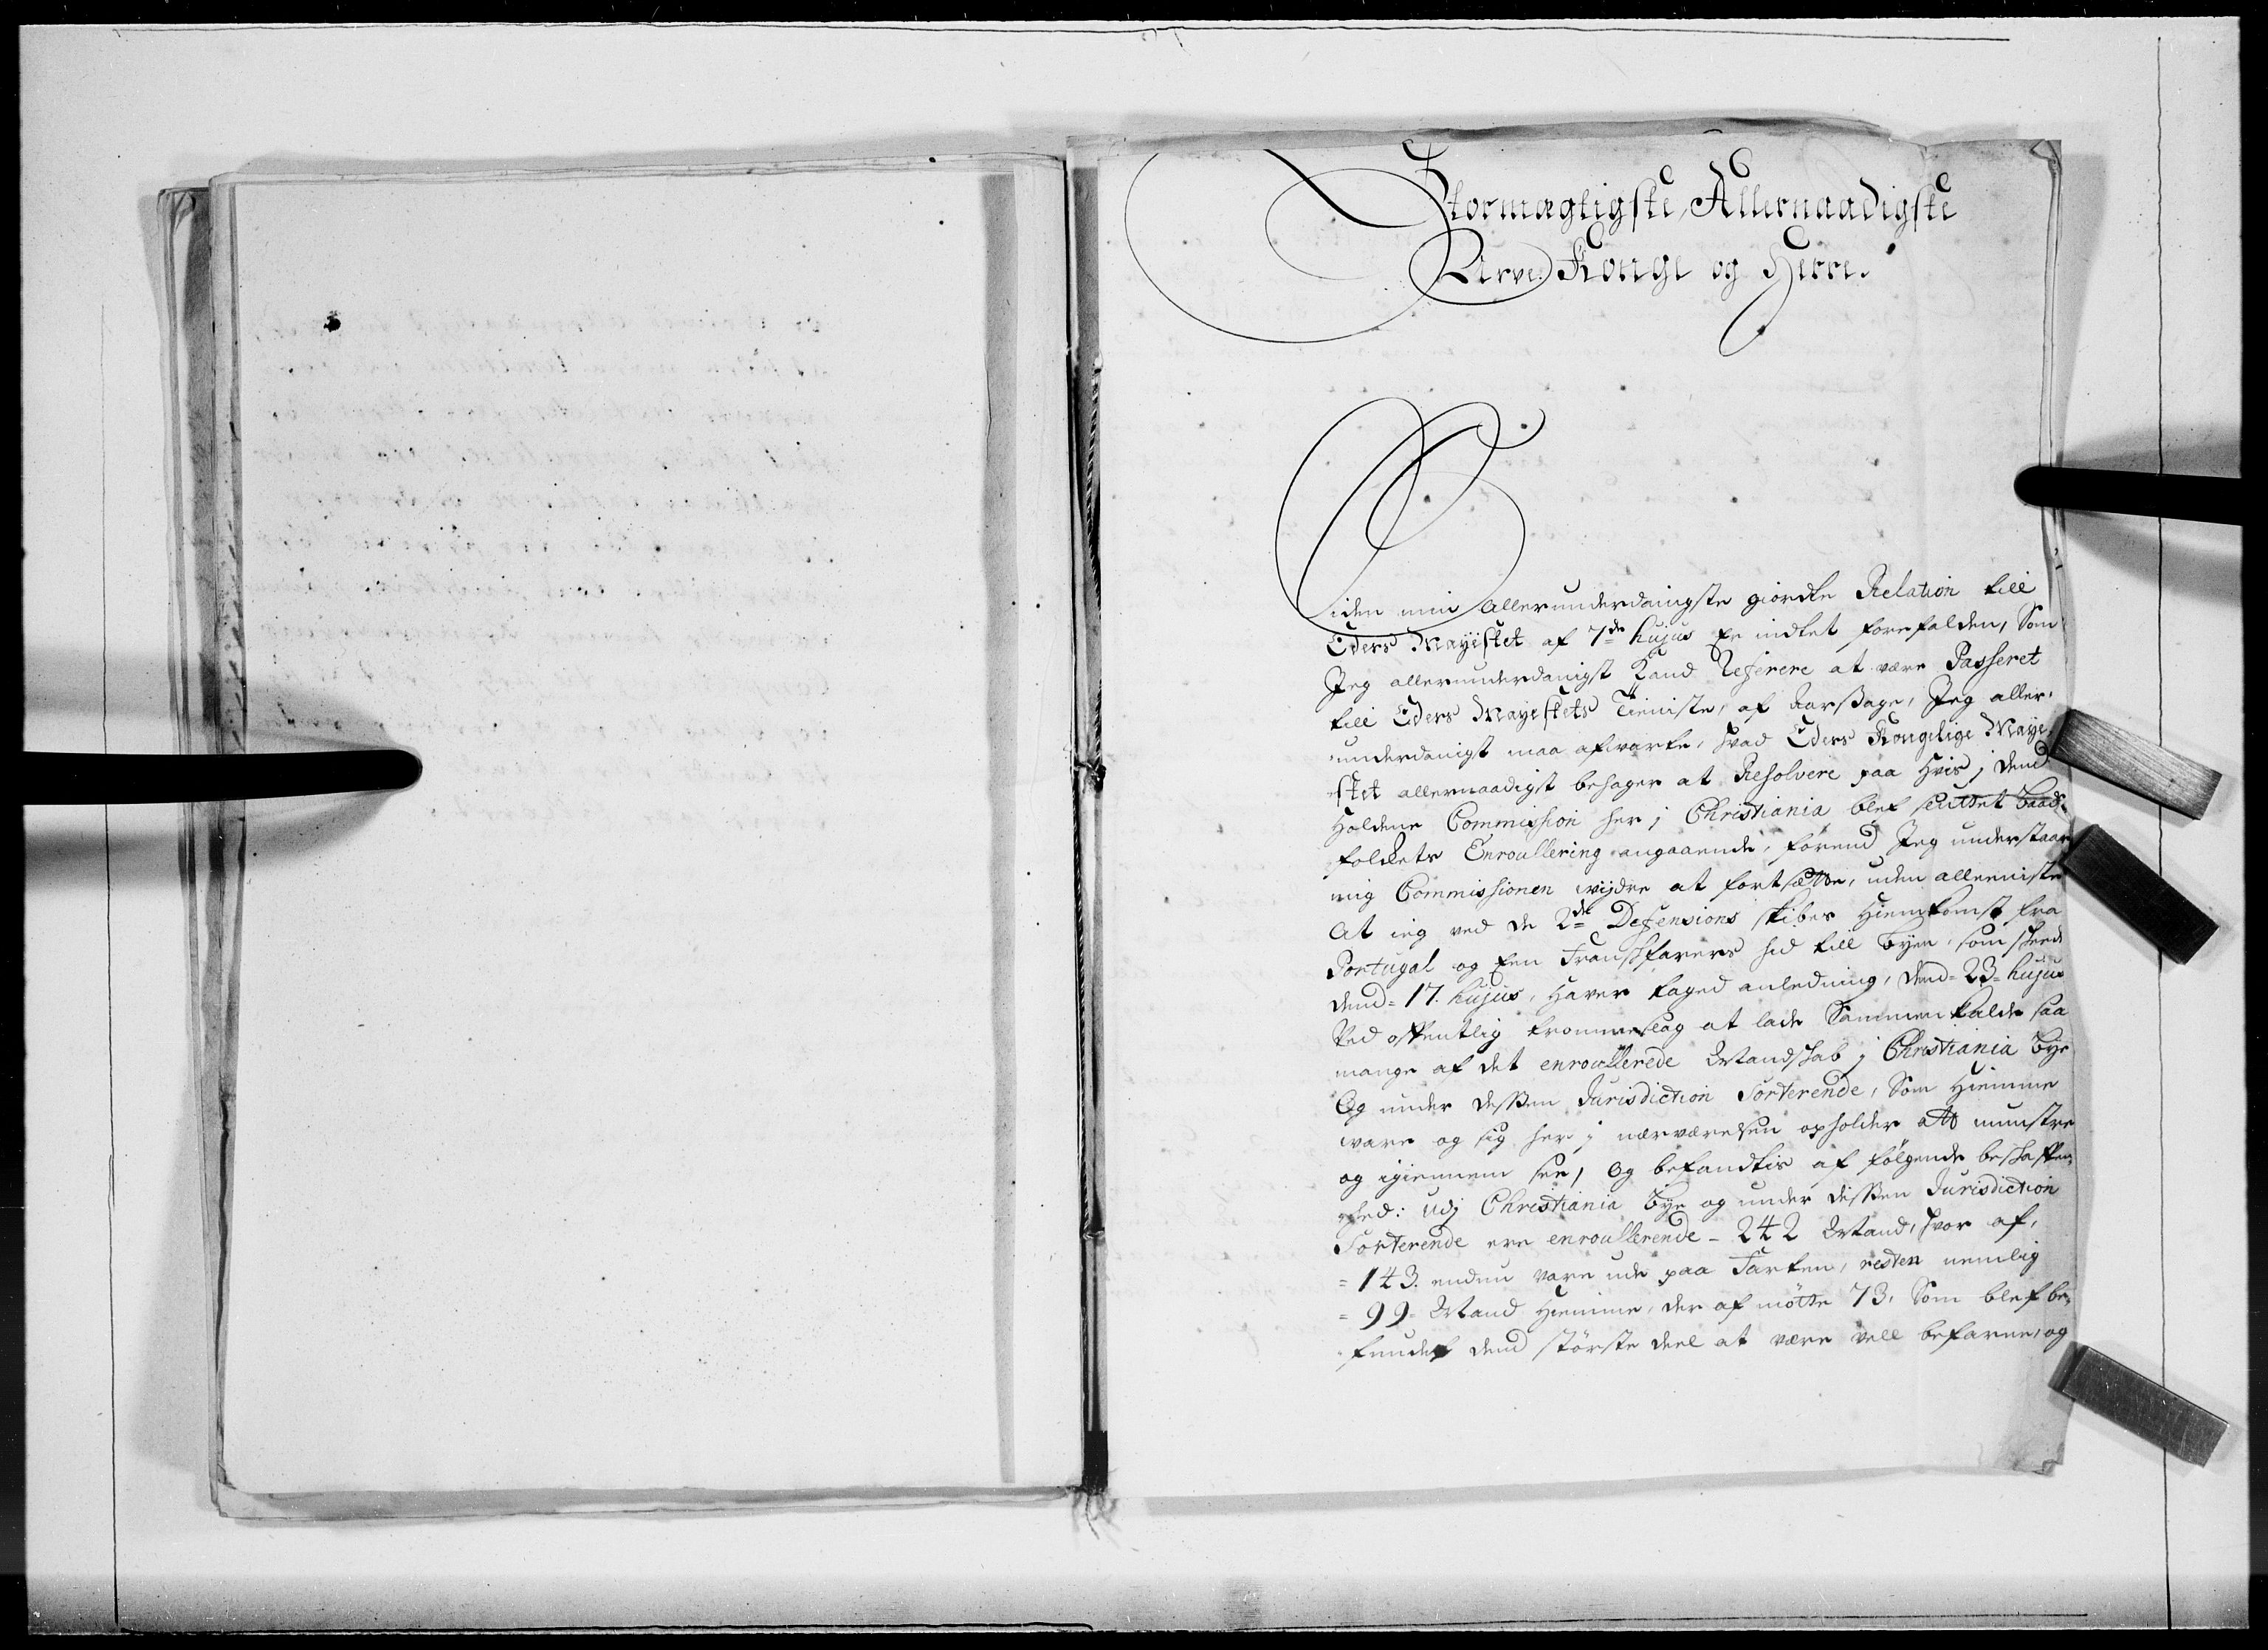 Stormægtigste, Allernaadigste
Arve Konge og Herre.
Siden min allerunderdanigste giordte Relation till
Eders Mayestet af 7de hujus Er indtet forefalden, Som
Jeg allerunderdanigst Kand Referere at være Passeret
till Eders Mayestets Tieniste, af Aarsage, Jeg aller-
underdanigst maa afvarte, hvad Eders Kongelige Maye-
stet allernaadigst behager at Resolvere paa hvis j dend
Holdene Commission her j Christiania blef sluttet Baads-
folckets Enroullering angaaende, førend Jeg understaar
mig Commissionen wijdre at fortsætte, uden alleeniste
At ieg ved de 2de Defensions skibes Hiemkomst fra
Portugal og Een Franskfarers hid till Byen, som skeede
dend= 17. hujus, Haver taged anledning, dend= 23= hujus
Ved offentlig trommeslag at lade Sammenkalde saa
mange af det enroullerede Mandskab j Christiania Bye
Og under dessen Jurisdiction Sorterende, Som Hiemme
ware og sig her j nærværelsen opholder att munstre
og igiennem see, Og befandtis af følgende beskaffen-
hed: udj Christiania Bye og under dissen Jurisdiction
Sorterende ere enroullerende - 242 Mand, hvor af,
= 143. endnu vare ude paa Farten, resten nemlig
= 99 Mand Hiemme, der af møtte 73. Som blef be-
funden dend største deel at være vell befarne, og